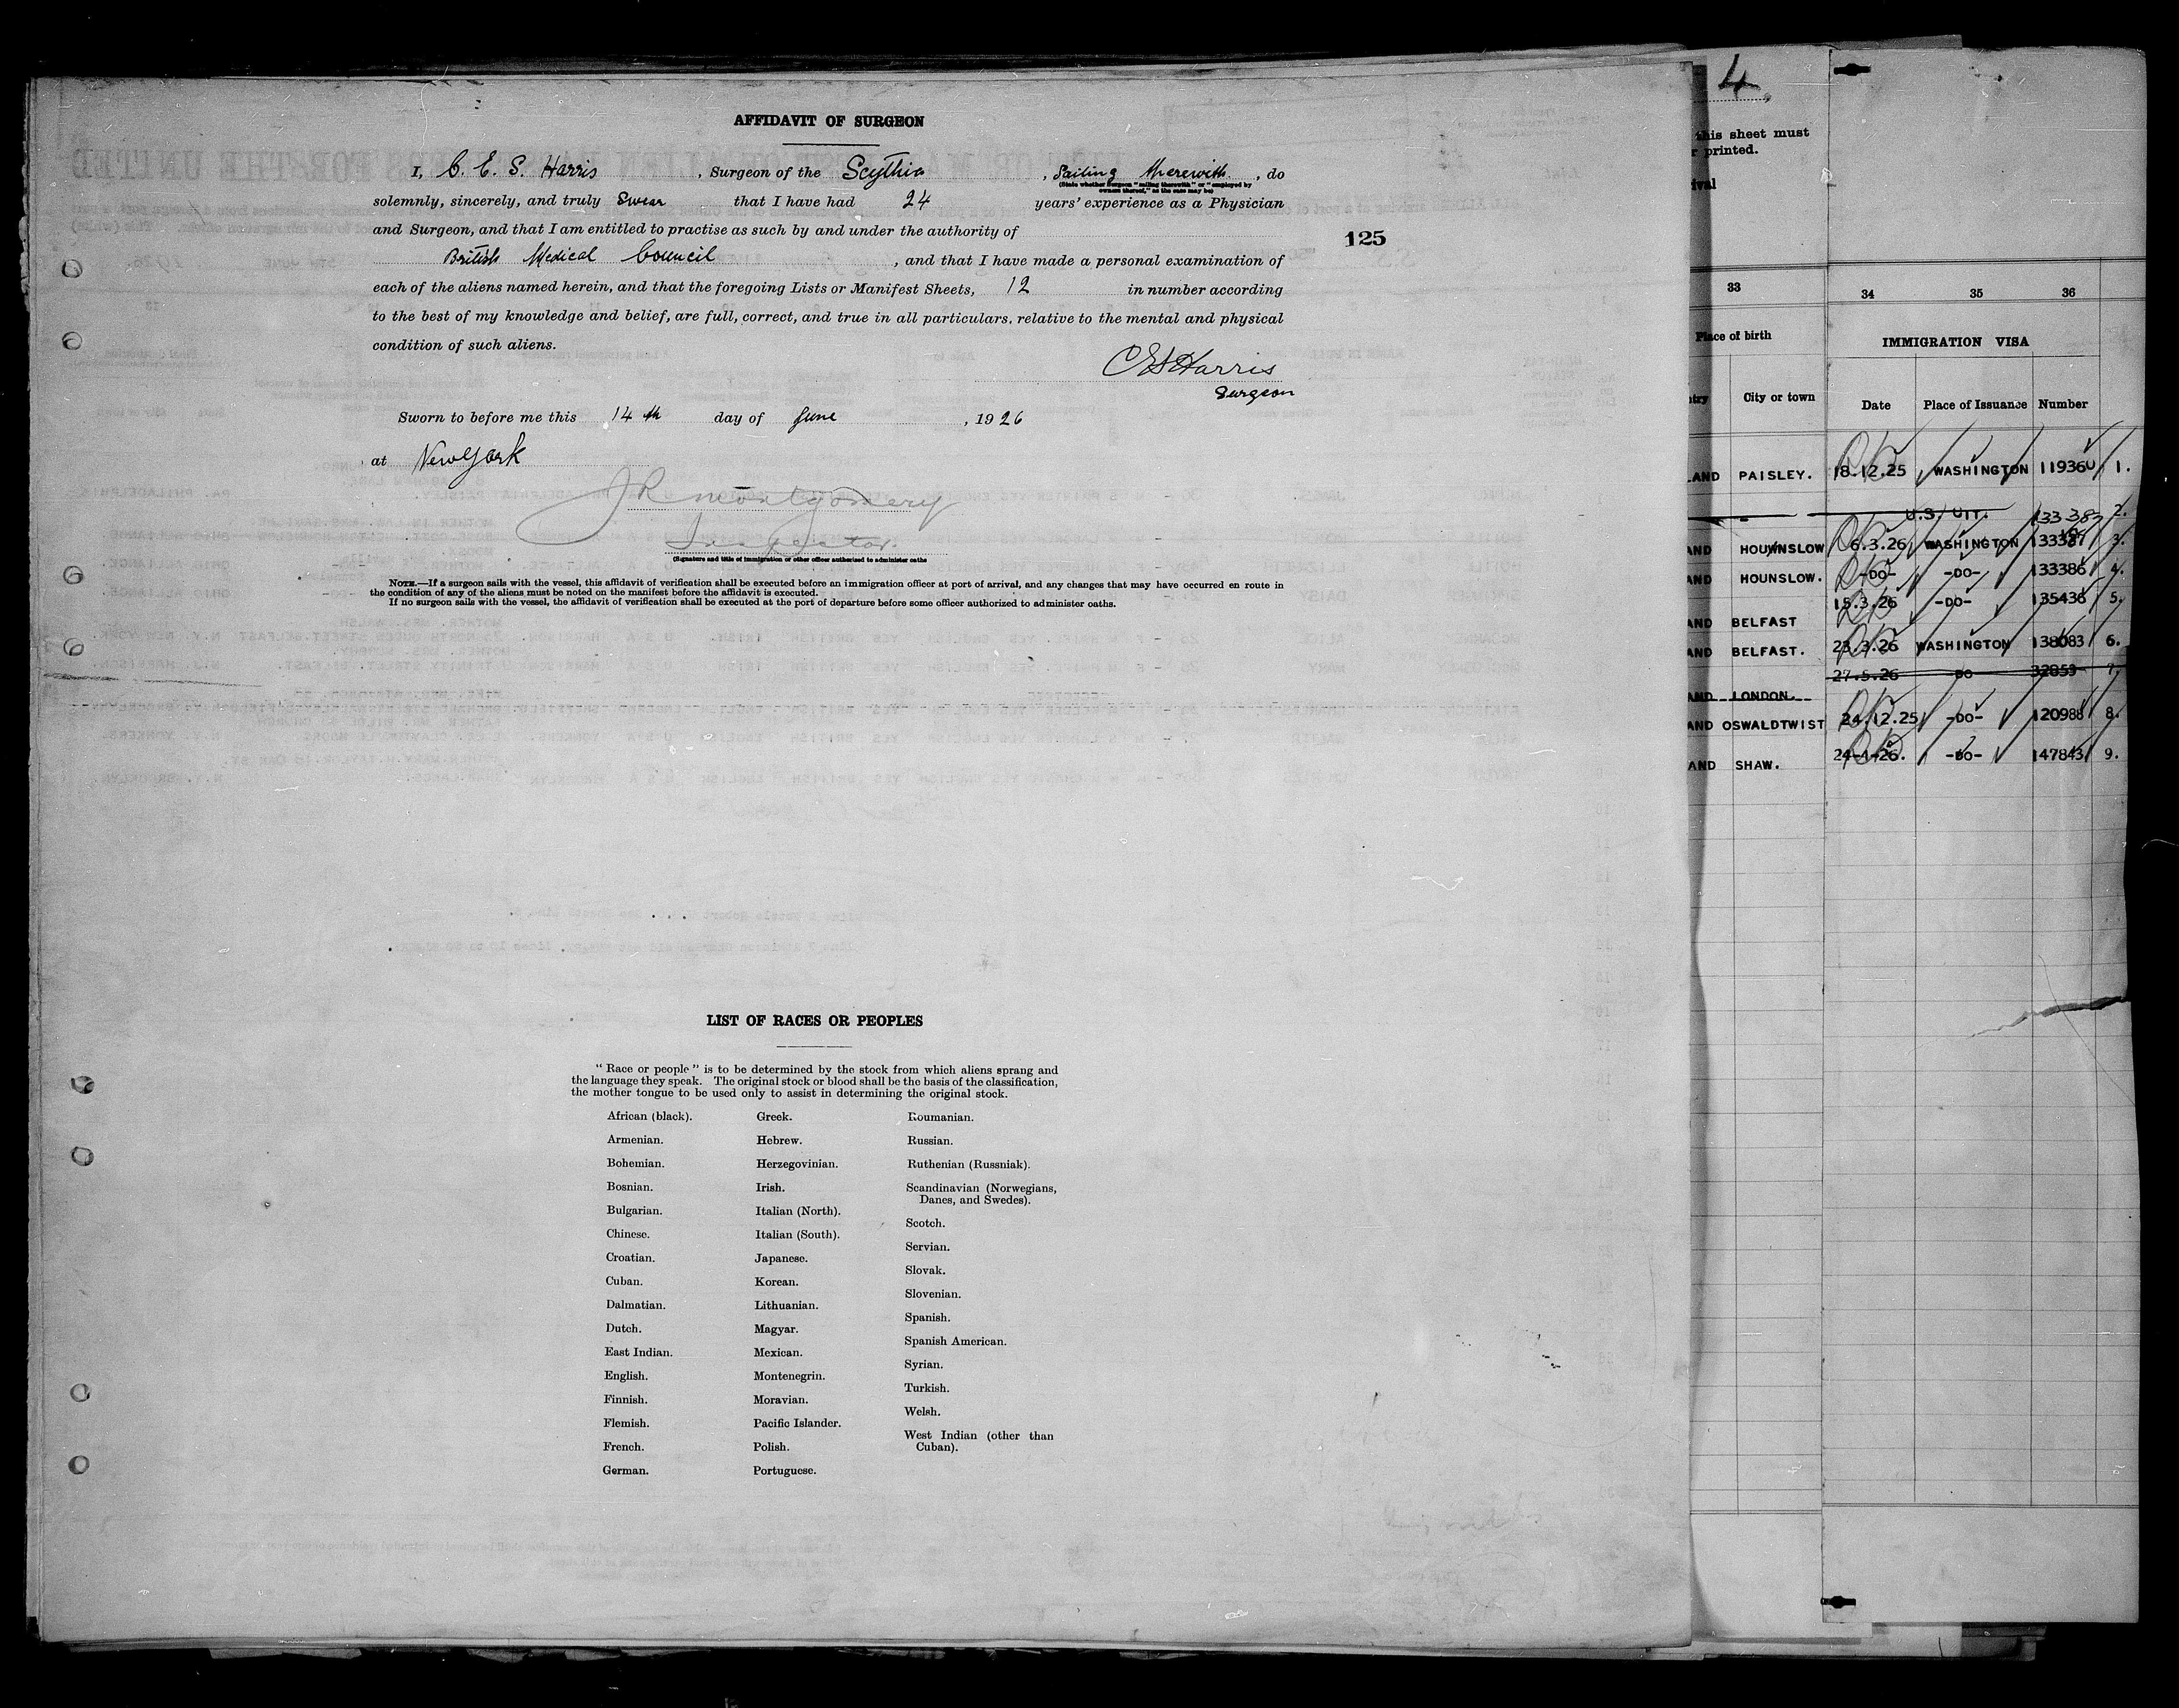 AFFIDAVIT OF SURGEON
I, C. E. S. Harris , Surgeon of the Scythia , Sailing therewith , do
(State whether Surgeon "sailing therewith" or "employed by
owners thereof," as the case may be)
solemnly, sincerely, and truly Swear that I have had 24 years' experience as a Physician
and Surgeon, and that I am entitled to practise as such by and under the authority of
British Medical Council , and that I have made a personal examination of
each of the aliens named herein, and that the foregoing Lists or Manifest Sheets, 12 in number according
to the best of my knowledge and belief, are full, correct, and true in all particulars, relative to the mental and physical
condition of such aliens.
125
CES Harris
Surgeon
Sworn to before me this 14th day of June , 1926
at New York
J R Montgomery
Inspector.
(Signature and title of immigration or other officer authorized to administer oaths
NOTE.—If a surgeon sails with the vessel, this affidavit of verification shall be executed before an immigration officer at port of arrival, and any changes that may have occurred en route in
the condition of any of the aliens must be noted on the manifest before the affidavit is executed.
If no surgeon sails with the vessel, the affidavit of verification shall be executed at the port of departure before some officer authorized to administer oaths.
LIST OF RACES OR PEOPLES
"Race or people" is to be determined by the stock from which aliens sprang and
the language they speak. The original stock or blood shall be the basis of the classification,
the mother tongue to be used only to assist in determining the original stock.
African (black).
Armenian.
Bohemian.
Bosnian.
Bulgarian.
Chinese.
Croatian.
Cuban.
Dalmatian.
Dutch.
East Indian.
English.
Finnish.
Flemish.
French.
German.
Greek.
Hebrew.
Herzegovinian.
Irish.
Italian (North).
Italian (South).
Japanese.
Korean.
Lithuanian.
Magyar.
Mexican.
Montenegrin.
Moravian.
Pacific Islander.
Polish.
Portuguese.
Roumanian.
Russian.
Ruthenian (Russniak).
Scandinavian (Norwegians,
Danes, and Swedes).
Scotch.
Servian.
Slovak.
Slovenian.
Spanish.
Spanish American.
Syrian.
Turkish.
Welsh.
West Indian (other than
Cuban).
4
this sheet must
r printed.
ival
33 34 35 36
Place of birth IMMIGRATION VISA
City or town Date Place of Issuance Number
AND PAISLEY. 18.12.25 WASHINGTON 119360 1.
U.S. CIT. 2.
AND HOUNSLOW 6.3.26 WASHINGTON 133387 3.
AND HOUNSLOW. -DO- -DO- 133386 4.
AND BELFAST 15.3.26 -DO- 135436 5.
AND BELFAST. 23.3.26 WASHINGTON 138083 6.
AND LONDON. 27.5.26 -DO- 32853 7.
AND OSWALDTWIST 24.12.25 -DO- 120988 8.
AND SHAW. 24-4-26. -DO- 147843 9.